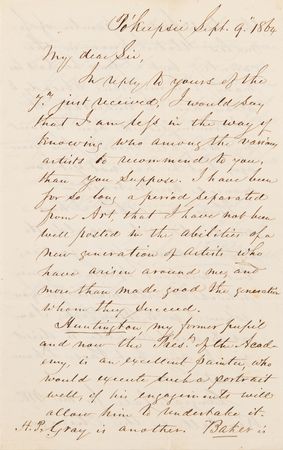 Po'keepsie Sept. 9. 1864
My dear Sir,
In reply to yours of the
7th just received, I would say
that I am less in the way of
knowing who among the various
artists to recommend to you,
than you suppose. I have been
for so long a period separated
from Art that I have not been
well posted in the abilities of a
new generation of artists who
have arisen around me, and
more than made good the generation
whom they succeed.
Huntington, my former pupil
and now the Prest of the Acad-
emy, is an excellent painter, who
would execute such a portrait
well, if his engagements will
allow him to undertake it.
H. P. Gray is another. Baker is